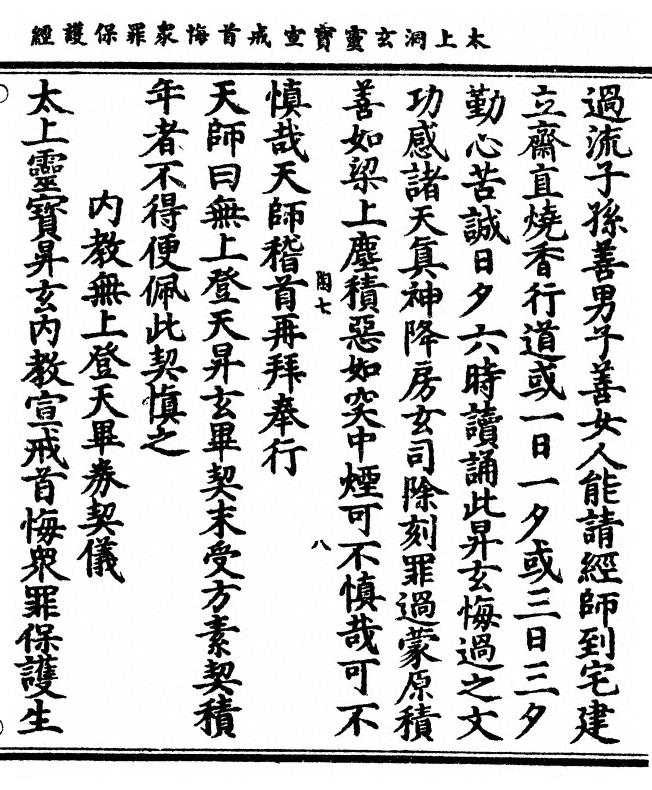 太上洞玄靈寶宣戒首悔衆罪保護經
過流子孫善男子善女人能請經師到宅建
立齋直燒香行道或一日一夕或三日三夕
勤心苦誠日夕六時讀誦此昇玄悔過之文
功感諸天真神降房玄司除刻罪過蒙原積
善如梁上塵積惡如突中煙可不慎哉可不
陶七
八
慎哉天師稽首再拜奉行
天師曰無上登天昇玄畢契末受方素契積
年者不得便佩此契慎之
内教無上登天畢券契儀
太上靈寶昇玄内教宣戒首悔衆罪保護生